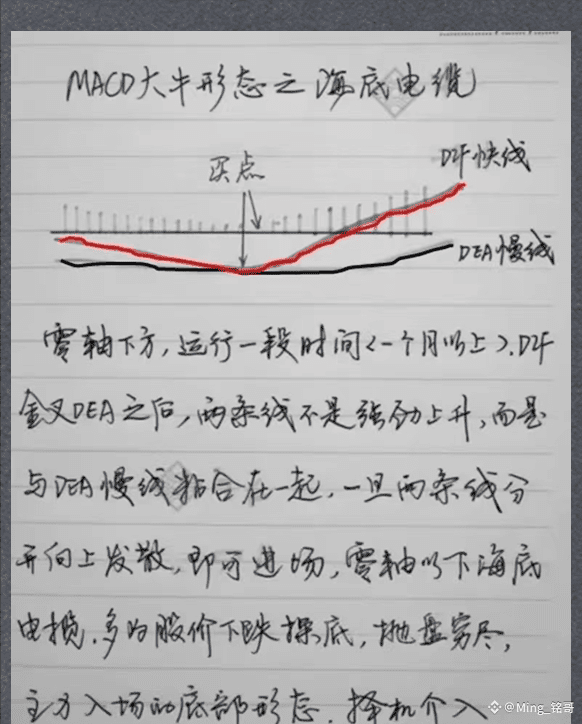 MACD大牛形态之海底电缆
买点
DIF快线
DEA慢线
零轴下方，运行一段时间<一个月以上>.DIF
金叉DEA之后，两条线不是强劲上升，而是
与DEA慢线粘合在一起，一旦两条线分
开向上发散，即可进场，零轴以下海底
电揽.多为股价下跌探底，抛盘穷尽，
主力入场的底部形态.择机介入
@Ming_铭哥